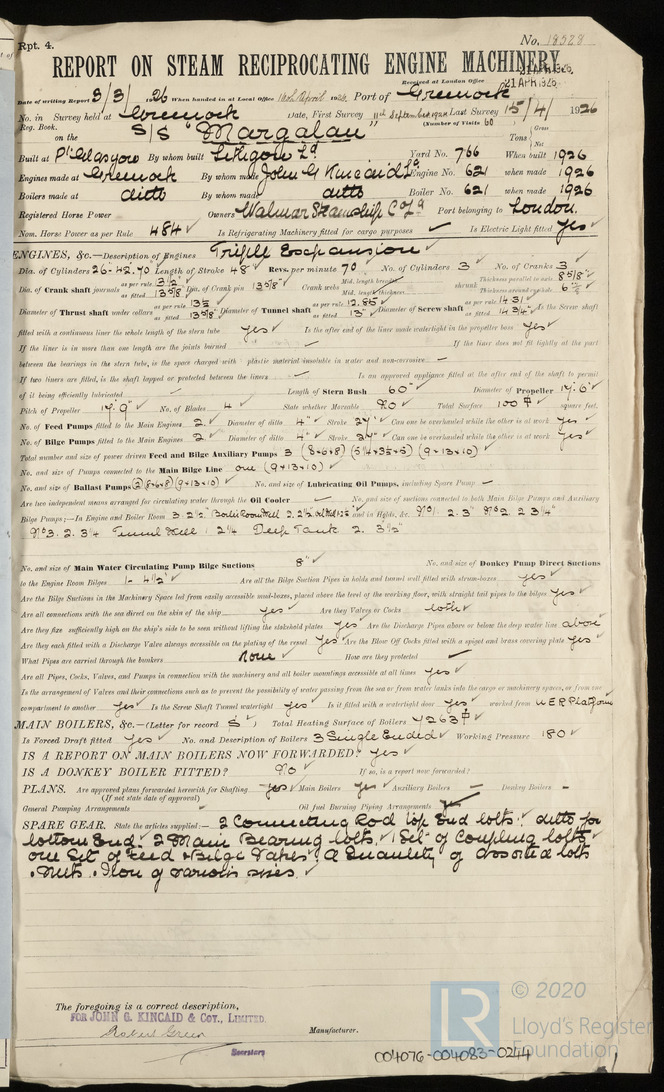 Rpt. 4.
No. 18528
REPORT ON STEAM RECIPROCATING ENGINE MACHINERY.
Received at London Office 21 APR 1926
Date of writing Report 3/3/1926 When handed in at Local Office 16th April 1926 Port of Greenock
No. in Survey held at Greenock Date, First Survey 11th September 1924 Last Survey 15/4/1926
Reg. Book. (Number of Visits 60
on the S/S "Margalau" Tons { Gross Net
Built at Pt Glasgow By whom built Lithgow Ld Yard No. 766 When built 1926
Engines made at Greenock By whom made John G Kincaid Ld Engine No. 621 when made 1926
Boilers made at ditto By whom made ditto Boiler No. 621 when made 1926
Registered Horse Power Owners Walmar Steamship Co Ld Port belonging to London.
Nom. Horse Power as per Rule 484 Is Refrigerating Machinery fitted for cargo purposes Is Electric Light fitted Yes
ENGINES, &c.—Description of Engines Triple Expansion
Dia. of Cylinders 26-42.70 Length of Stroke 48" Revs. per minute 70 No. of Cylinders 3 No. of Cranks 3
Dia. of Crank shaft journals as per rule as fitted 13 5/8 Dia. of Crank pin 13 5/8 Crank webs Mid. length breadth Mid. length thickness shrunk Thickness parallel to axis 8 5/8" Thickness around eyehole
Diameter of Thrust shaft under collars as per rule 13½ as fitted 13 5/8 Diameter of Tunnel shaft as per rule 12.85 as fitted 13" Diameter of Screw shaft as per rule 14.31 as fitted 14 3/4" Is the Screw shaft
fitted with a continuous liner the whole length of the stern tube yes Is the after end of the liner made watertight in the propeller boss yes
If the liner is in more than one length are the joints burned If the liner does not fit tightly at the part
between the bearings in the stern tube, is the space charged with a plastic material insoluble in water and non-corrosive
If two liners are fitted, is the shaft lapped or protected between the liners Is an approved appliance fitted at the after end of the shaft to permit
of it being efficiently lubricated Length of Stern Bush 60" Diameter of Propeller 17'.6"
Pitch of Propeller 17'.9" No. of Blades 4 State whether Moveable No Total Surface 100 square feet.
No. of Feed Pumps fitted to the Main Engines 2 Diameter of ditto 4" Stroke 24" Can one be overhauled while the other is at work yes
No. of Bilge Pumps fitted to the Main Engines 2 Diameter of ditto 4" Stroke 24" Can one be overhauled while the other is at work yes
Total number and size of power driven Feed and Bilge Auxiliary Pumps 3 (8×6×8) (5¼×3½×5) (9×13×10)
No. and size of Pumps connected to the Main Bilge Line one (9×13×10)
No. and size of Ballast Pumps (8×6×8) (9×13×10) No. and size of Lubricating Oil Pumps, including Spare Pump
Are two independent means arranged for circulating water through the Oil Cooler No. and size of suctions connected to both Main Bilge Pumps and Auxiliary
Bilge Pumps;—In Engine and Boiler Room 3. 2½" and in Holds, &c. No1. 2.3" No2. 2 3¼"
No3. 2. 3¼ Tunnel Well 1 2¼ Deep Tank 2. 3½"
No. and size of Main Water Circulating Pump Bilge Suctions 8" No. and size of Donkey Pump Direct Suctions
to the Engine Room Bilges 1- 4½" Are all the Bilge Suction Pipes in holds and tunnel well fitted with strum-boxes yes
Are the Bilge Suctions in the Machinery Space led from easily accessible mud-boxes, placed above the level of the working floor, with straight tail pipes to the bilges yes
Are all connections with the sea direct on the skin of the ship yes Are they Valves or Cocks both
Are they fixed sufficiently high on the ship's side to be seen without lifting the stokehold plates yes Are the Discharge Pipes above or below the deep water line above
Are they each fitted with a Discharge Valve always accessible on the plating of the vessel yes Are the Blow Off Cocks fitted with a spigot and brass covering plate yes
What Pipes are carried through the bunkers None How are they protected
Are all Pipes, Cocks, Valves, and Pumps in connection with the machinery and all boiler mountings accessible at all times yes
Is the arrangement of Valves and their connections such as to prevent the possibility of water passing from the sea or from water tanks into the cargo or machinery spaces, or from one
compartment to another yes Is the Screw Shaft Tunnel watertight yes Is it fitted with a watertight door yes worked from U E R Platform
MAIN BOILERS, &c.—(Letter for record S) Total Heating Surface of Boilers 7263
Is Forced Draft fitted yes No. and Description of Boilers 3 Single Ended Working Pressure 180
IS A REPORT ON MAIN BOILERS NOW FORWARDED? yes
IS A DONKEY BOILER FITTED? No If so, is a report now forwarded?
PLANS. Are approved plans forwarded herewith for Shafting yes Main Boilers yes Auxiliary Boilers Donkey Boilers
(If not state date of approval)
General Pumping Arrangements Oil fuel Burning Piping Arrangements
SPARE GEAR. State the articles supplied:— 2 Connecting Rod top End bolts: ditto for
bottom End. 2 Main Bearing bolts. 1 Set of Coupling bolts
one Set of Feed & Bilge Valves. A Quantity of assorted bolts
& Nuts. & Iron of various sizes.
The foregoing is a correct description,
FOR JOHN G. KINCAID & COY., LIMITED.
Robert Green
Manufacturer.
Secretary
004076-004083-0244
LR
© 2020
Lloyd's Register
Foundation